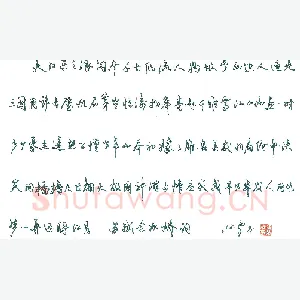 大江东去浪淘尽千古风流人物故垒西边人道是
三国周郎赤壁乱石穿空惊涛拍岸卷起千堆雪江山如画一时
多少豪杰遥想公瑾当年小乔初嫁了雄姿英发羽扇纶巾谈
笑间樯橹灰飞烟灭故国神游多情应笑我早生华发人间如
梦一尊还酹江月 苏轼念奴娇词
Shufawang.CN